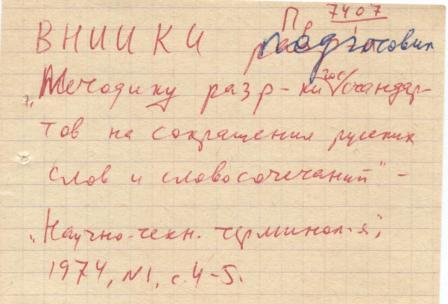 П 7407
ВНИИКИ подготовил
"Методику разр-ки гос стандар-
тов на сокращения русских
слов и словосочетаний" -
"Научно-техн. терминол-я",
1974, N1, с. 4-5.